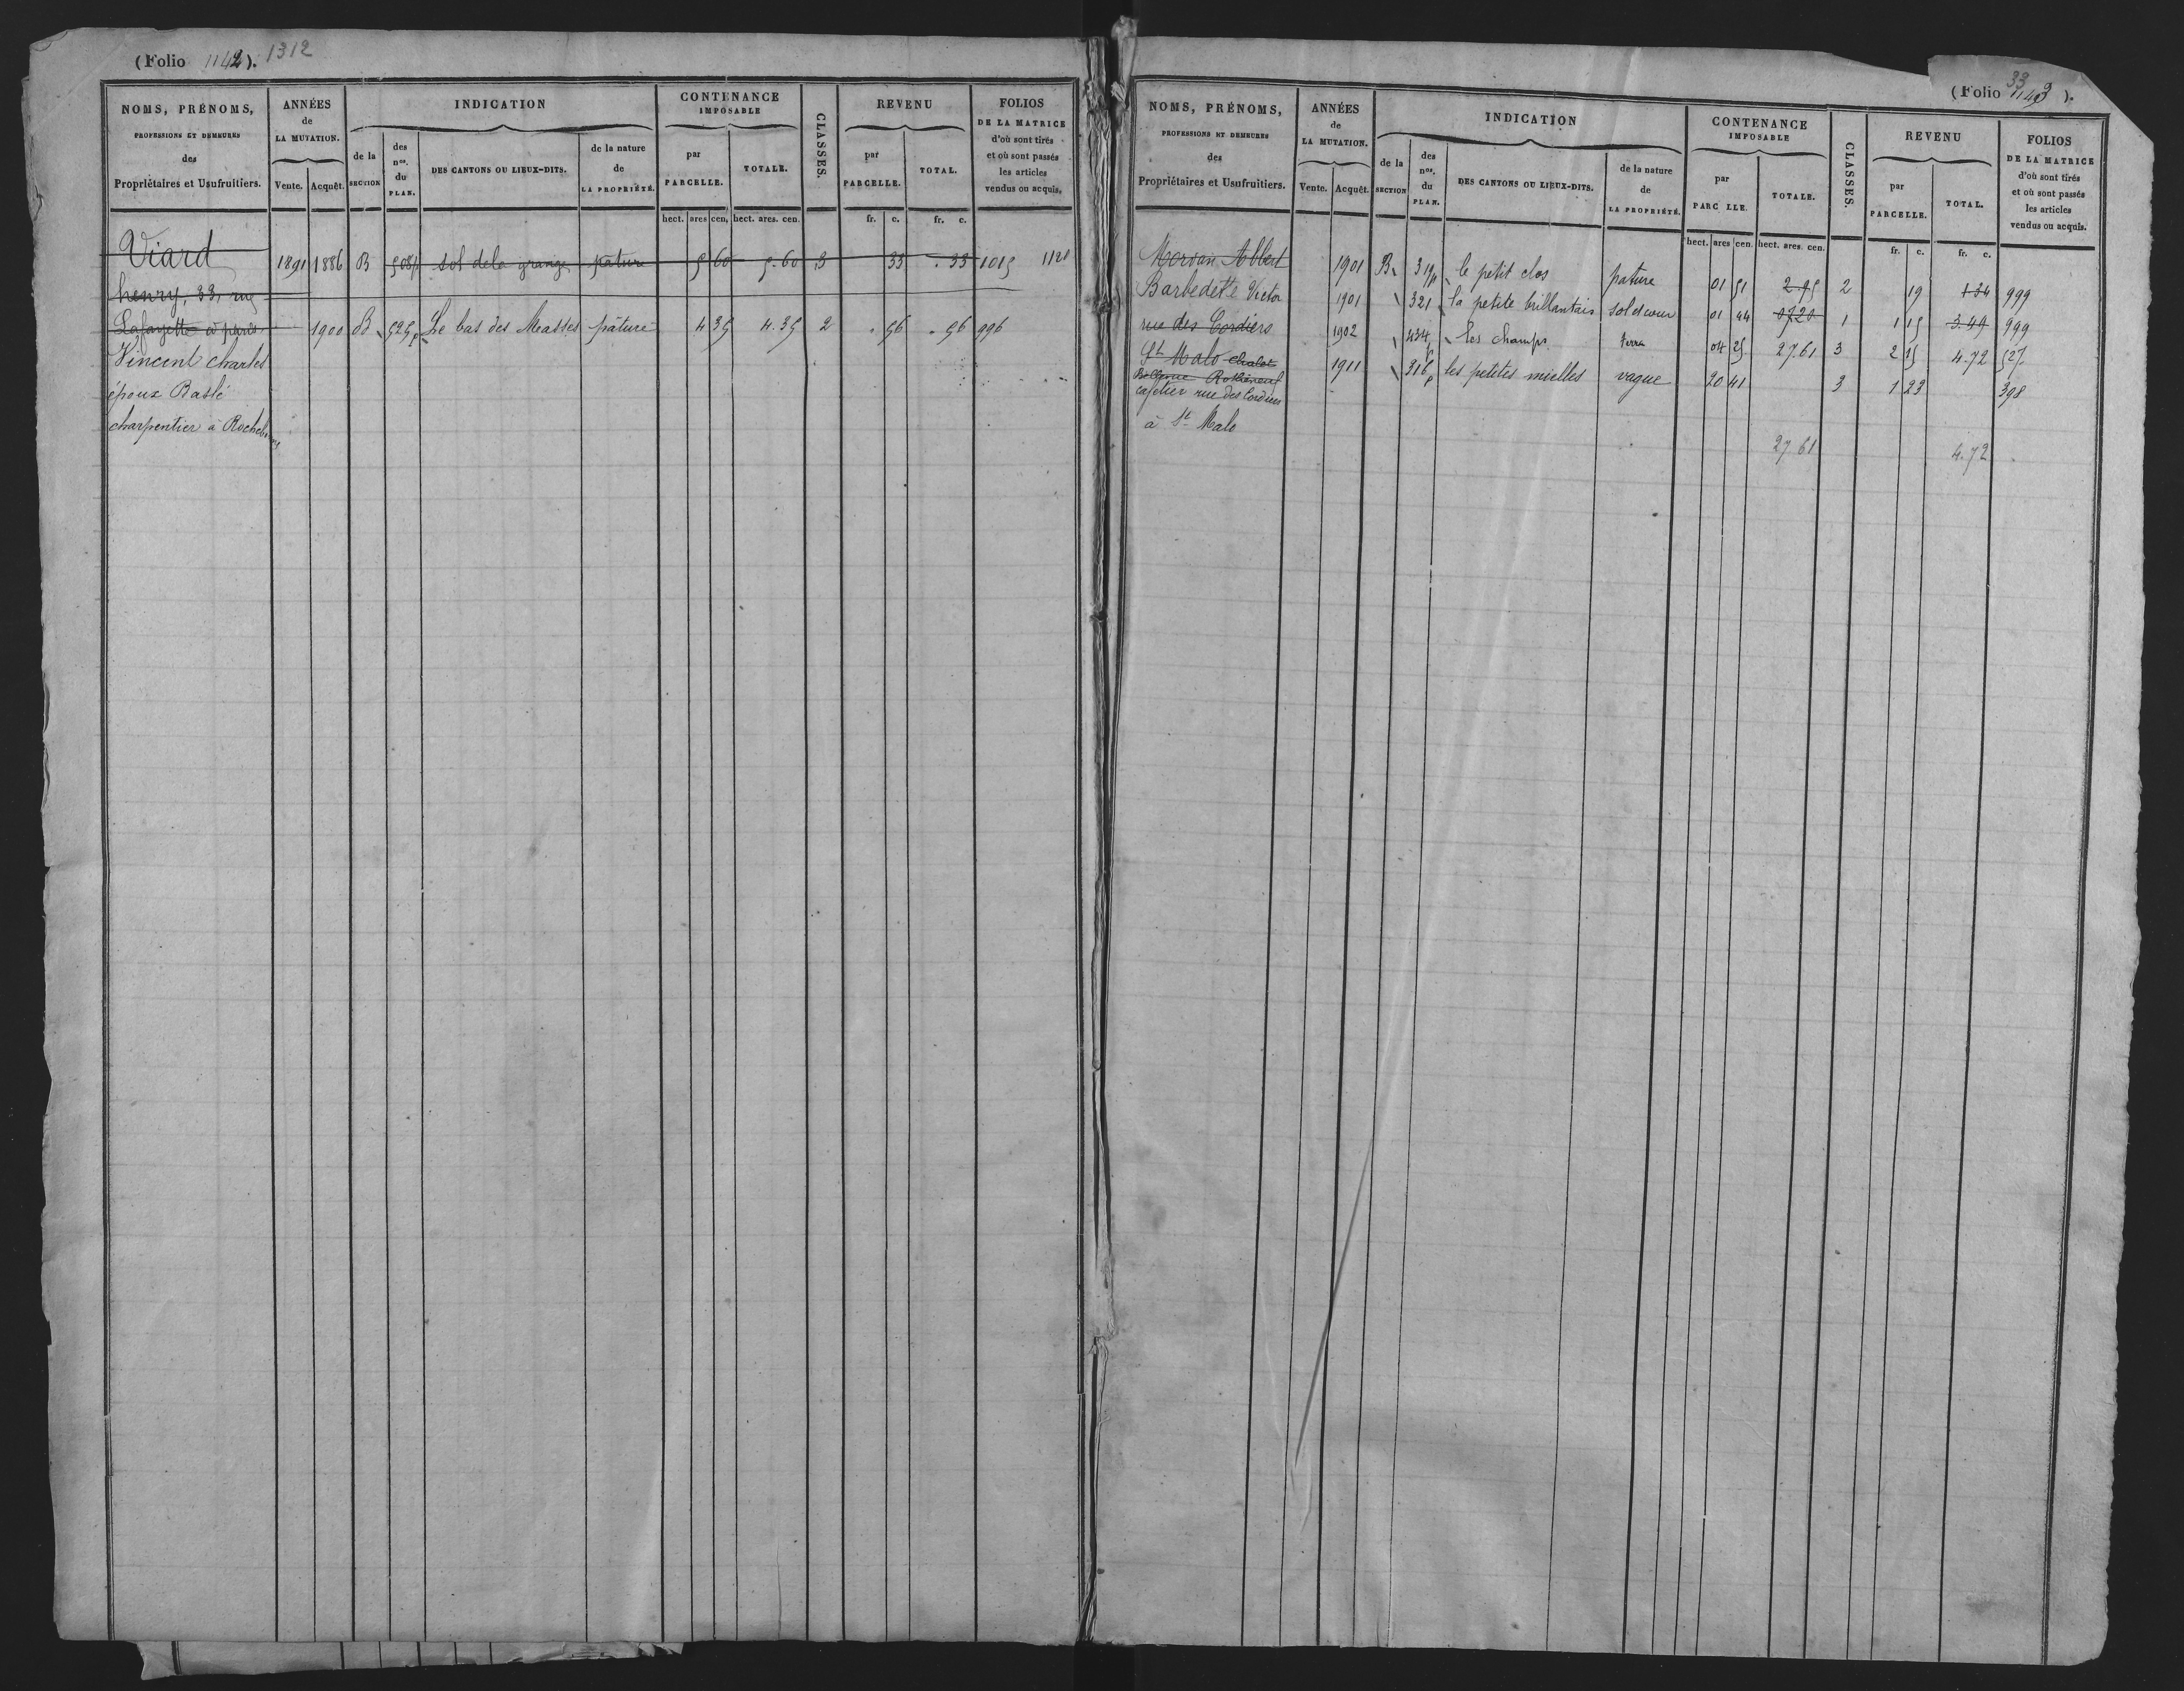 (Folio 1142). 1312
NOMS, PRÉNOMS,
PROFESSIONS ET DEMEURES
des
Propriétaires et Usufruitiers.
ANNÉES
de
LA MUTATION.
Vente. Acquêt.
INDICATION
de la
SECTION
des
nos.
du
PLAN.
DES CANTONS OU LIEUX-DITS.
de la nature
de
LA PROPRIÉTÉ.
CONTENANCE
IMPOSABLE
par
PARCELLE.
TOTALE.
CLASSES.
REVENU
par
PARCELLE.
TOTAL.
FOLIOS
DE LA MATRICE
d'où sont tirés
et où sont passés
les articles
vendus ou acquis.
hect. ares cen. hect. ares. cen. fr. c. fr. c.
Viard 1891 1886 B 508p sol de la grange pature 5 60 5.60 3 33 . 33 1015 1121
henry, 33, rue
Lafayette à paris. 1900 B 525p Le bas des Masses pâture 4 35 4.35 2 . 56 . 56 996
Vincent Charles
époux Baslé
charpentier à
(Folio 33 1143 ).
NOMS, PRÉNOMS,
PROFESSIONS ET DEMEURES
des
Propriétaires et Usufruitiers.
ANNÉES
de
LA MUTATION.
Vente. Acquêt.
INDICATION
de la
SECTION
des
nos.
du
PLAN.
DES CANTONS OU LIEUX-DITS.
de la nature
de
LA PROPRIÉTÉ.
CONTENANCE
IMPOSABLE
par
PARC LLE.
TOTALE.
CLASSES.
REVENU
par
PARCELLE.
TOTAL.
FOLIOS
DE LA MATRICE
d'où sont tirés
et où sont passés
les articles
vendus ou acquis.
hect. ares cen. hect. ares. cen. fr. c. fr. c.
Morvan Albert 1901 B 319p le petit clos pature 01 51 2.95 2 19 1.34 999
Barbedette Victor 1901 321 la petite brillantais sol et cour 01 44 07 20 1 1 15 3.49 999
rue des Cordiers 1902 434p les champs terre 04 25 27.61 3 2 15 4.72 527
St Malo chalet 1911 316p les petites mielles vague 20 41 3 1 23 398
Bellevue Rothéneuf
cafetier rue des Cordiers
à St Malo
27 61 4.72